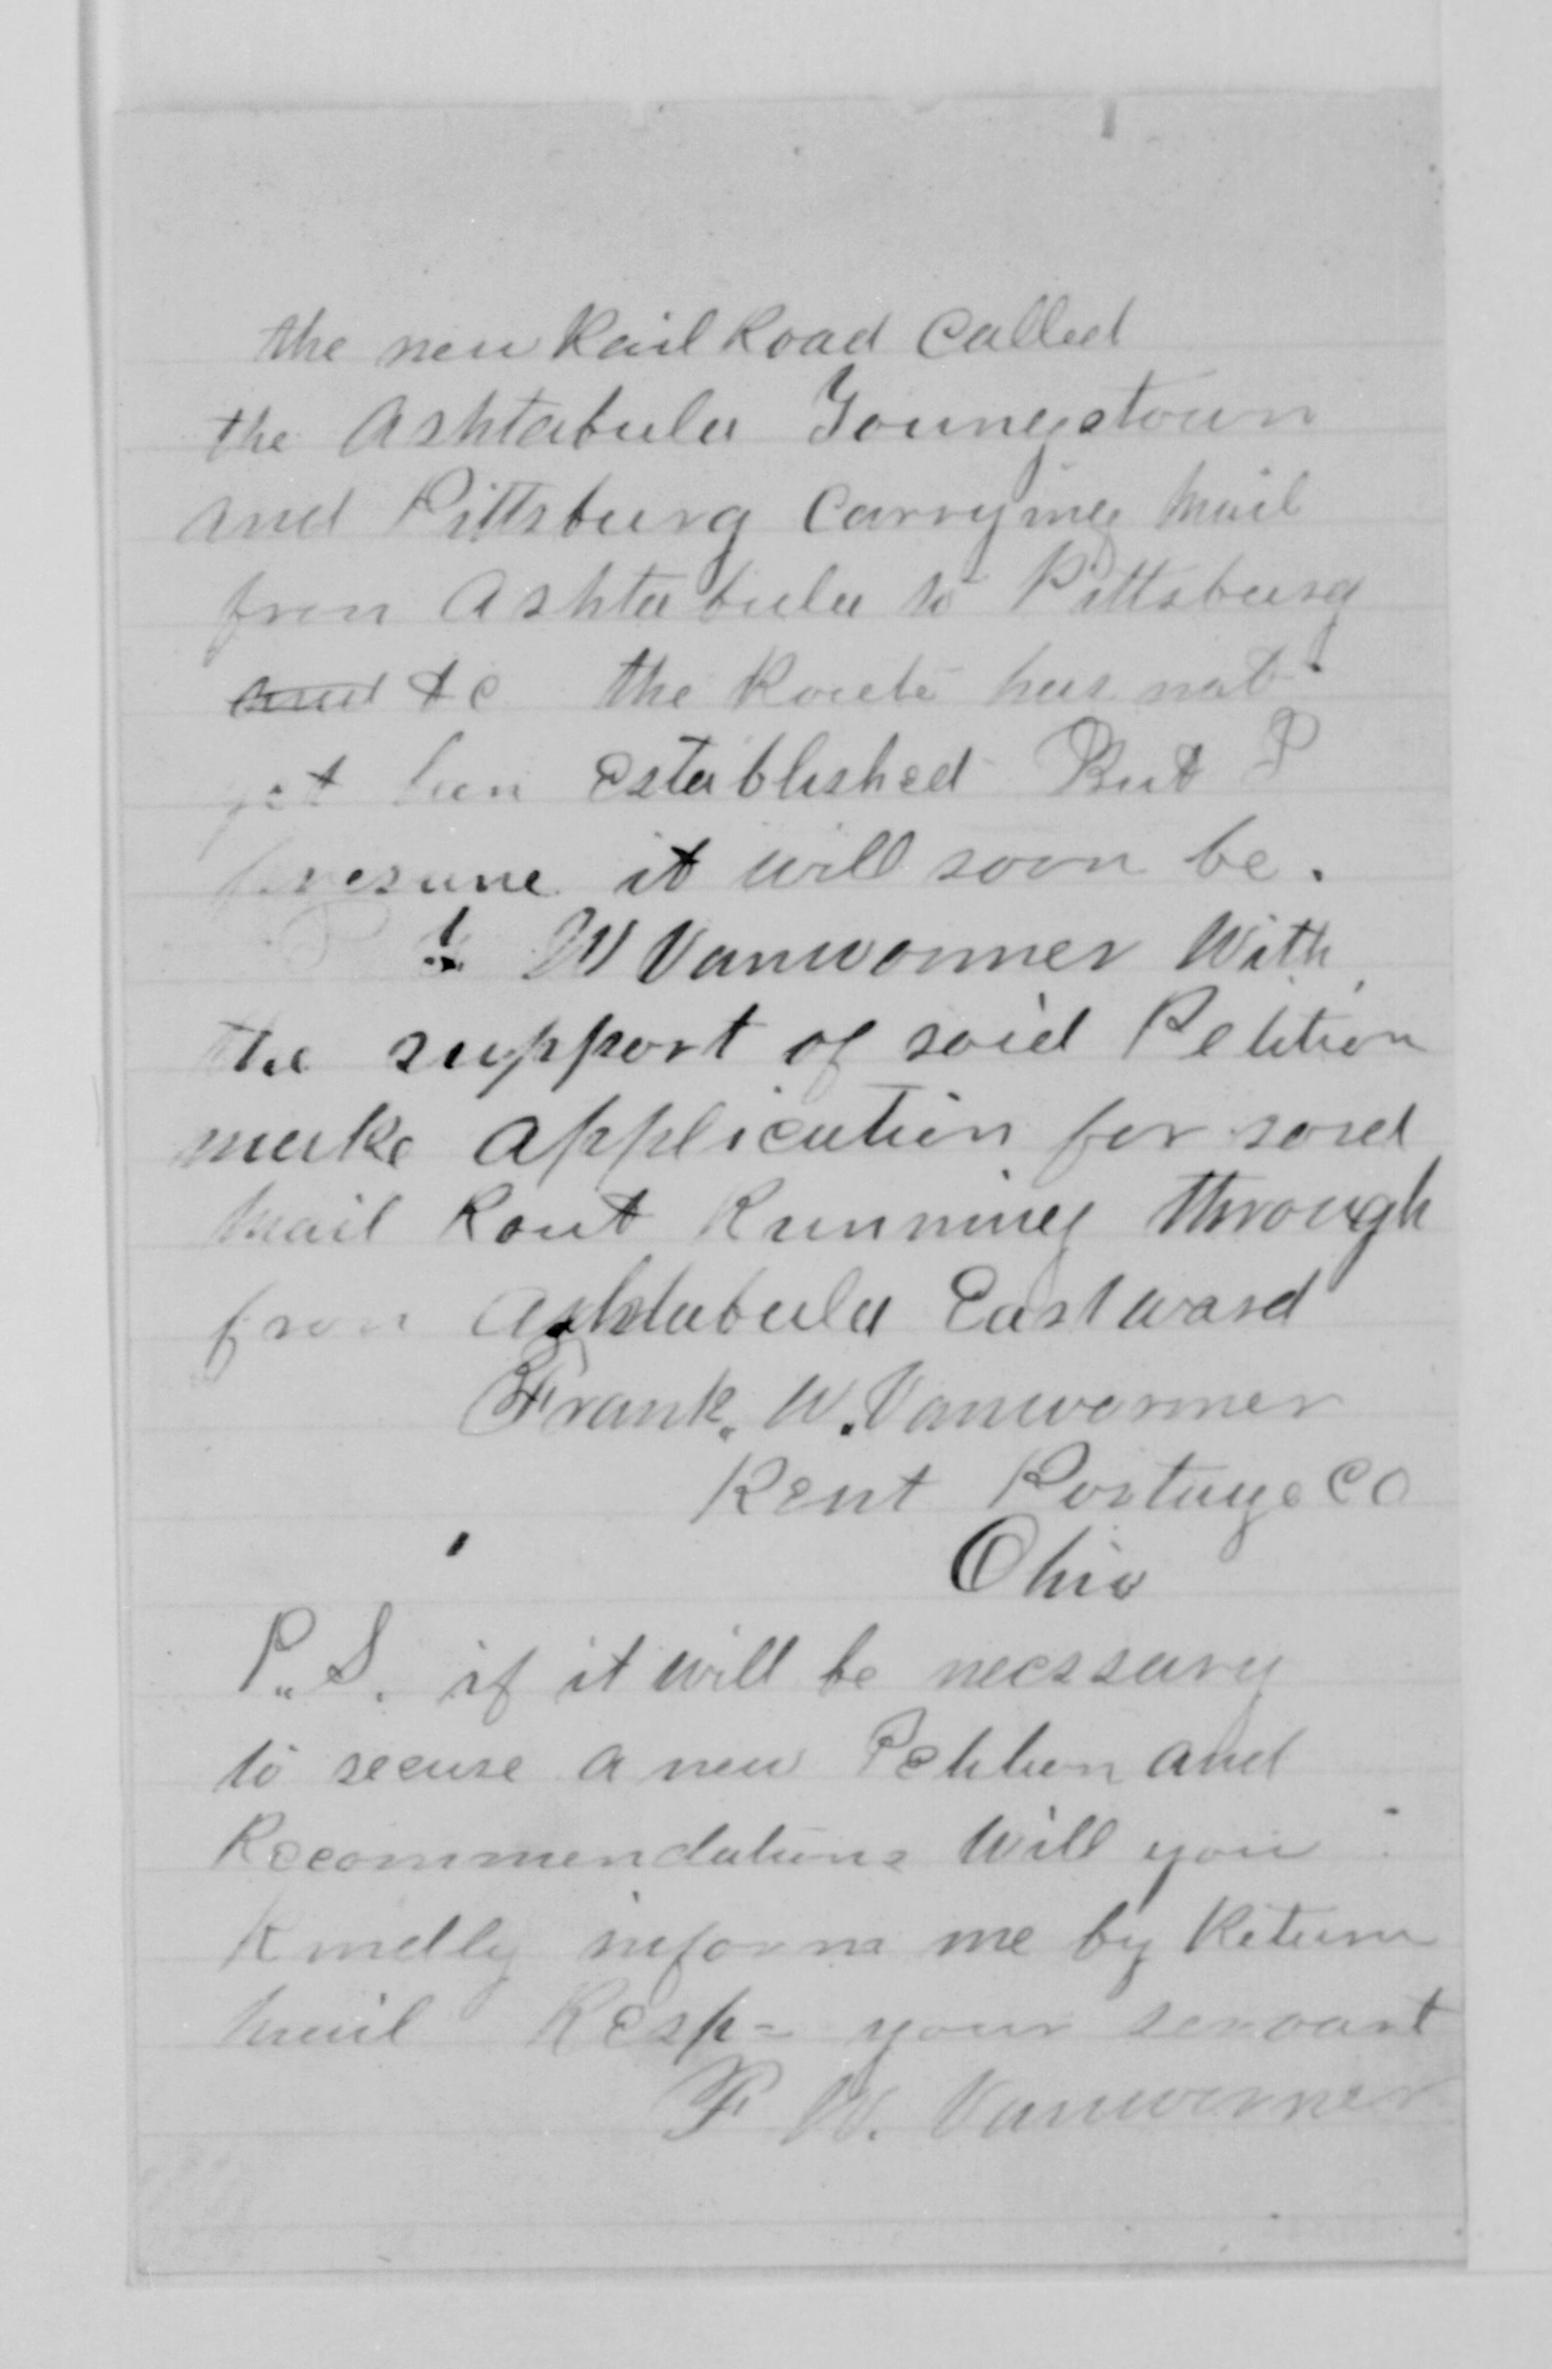 the new Rail Road Called
the Ashtabula Youngstown
and Pittsburg Carrying Mail
from Ashtabula to Pittsburg
and &c the Route has not
yet been established But I
presume it will soon be.
W Vanwormer With
the support of said Petition
make application for said
Mail Rout Running through
from Ashtabula Eastward
Frank. W. Vanwormer
Kent Portage CO
Ohio
P.S. if it will be necssary
to secure a new Petition and
Recommendations Will you
Kindly inform me by Return
Mail Resp= your servant
F W. Vanwormer